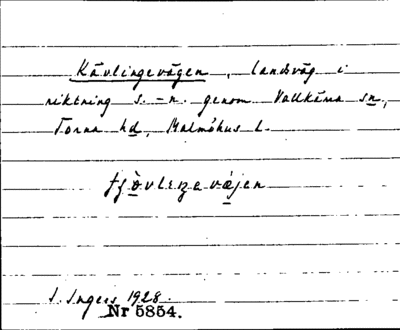 Kävlingevägen, landsväg i
riktning s.-n. genom Vallkärra sn,
Torna hd, Malmöhus l.
I. Ingers 1928.
Nr 5854.